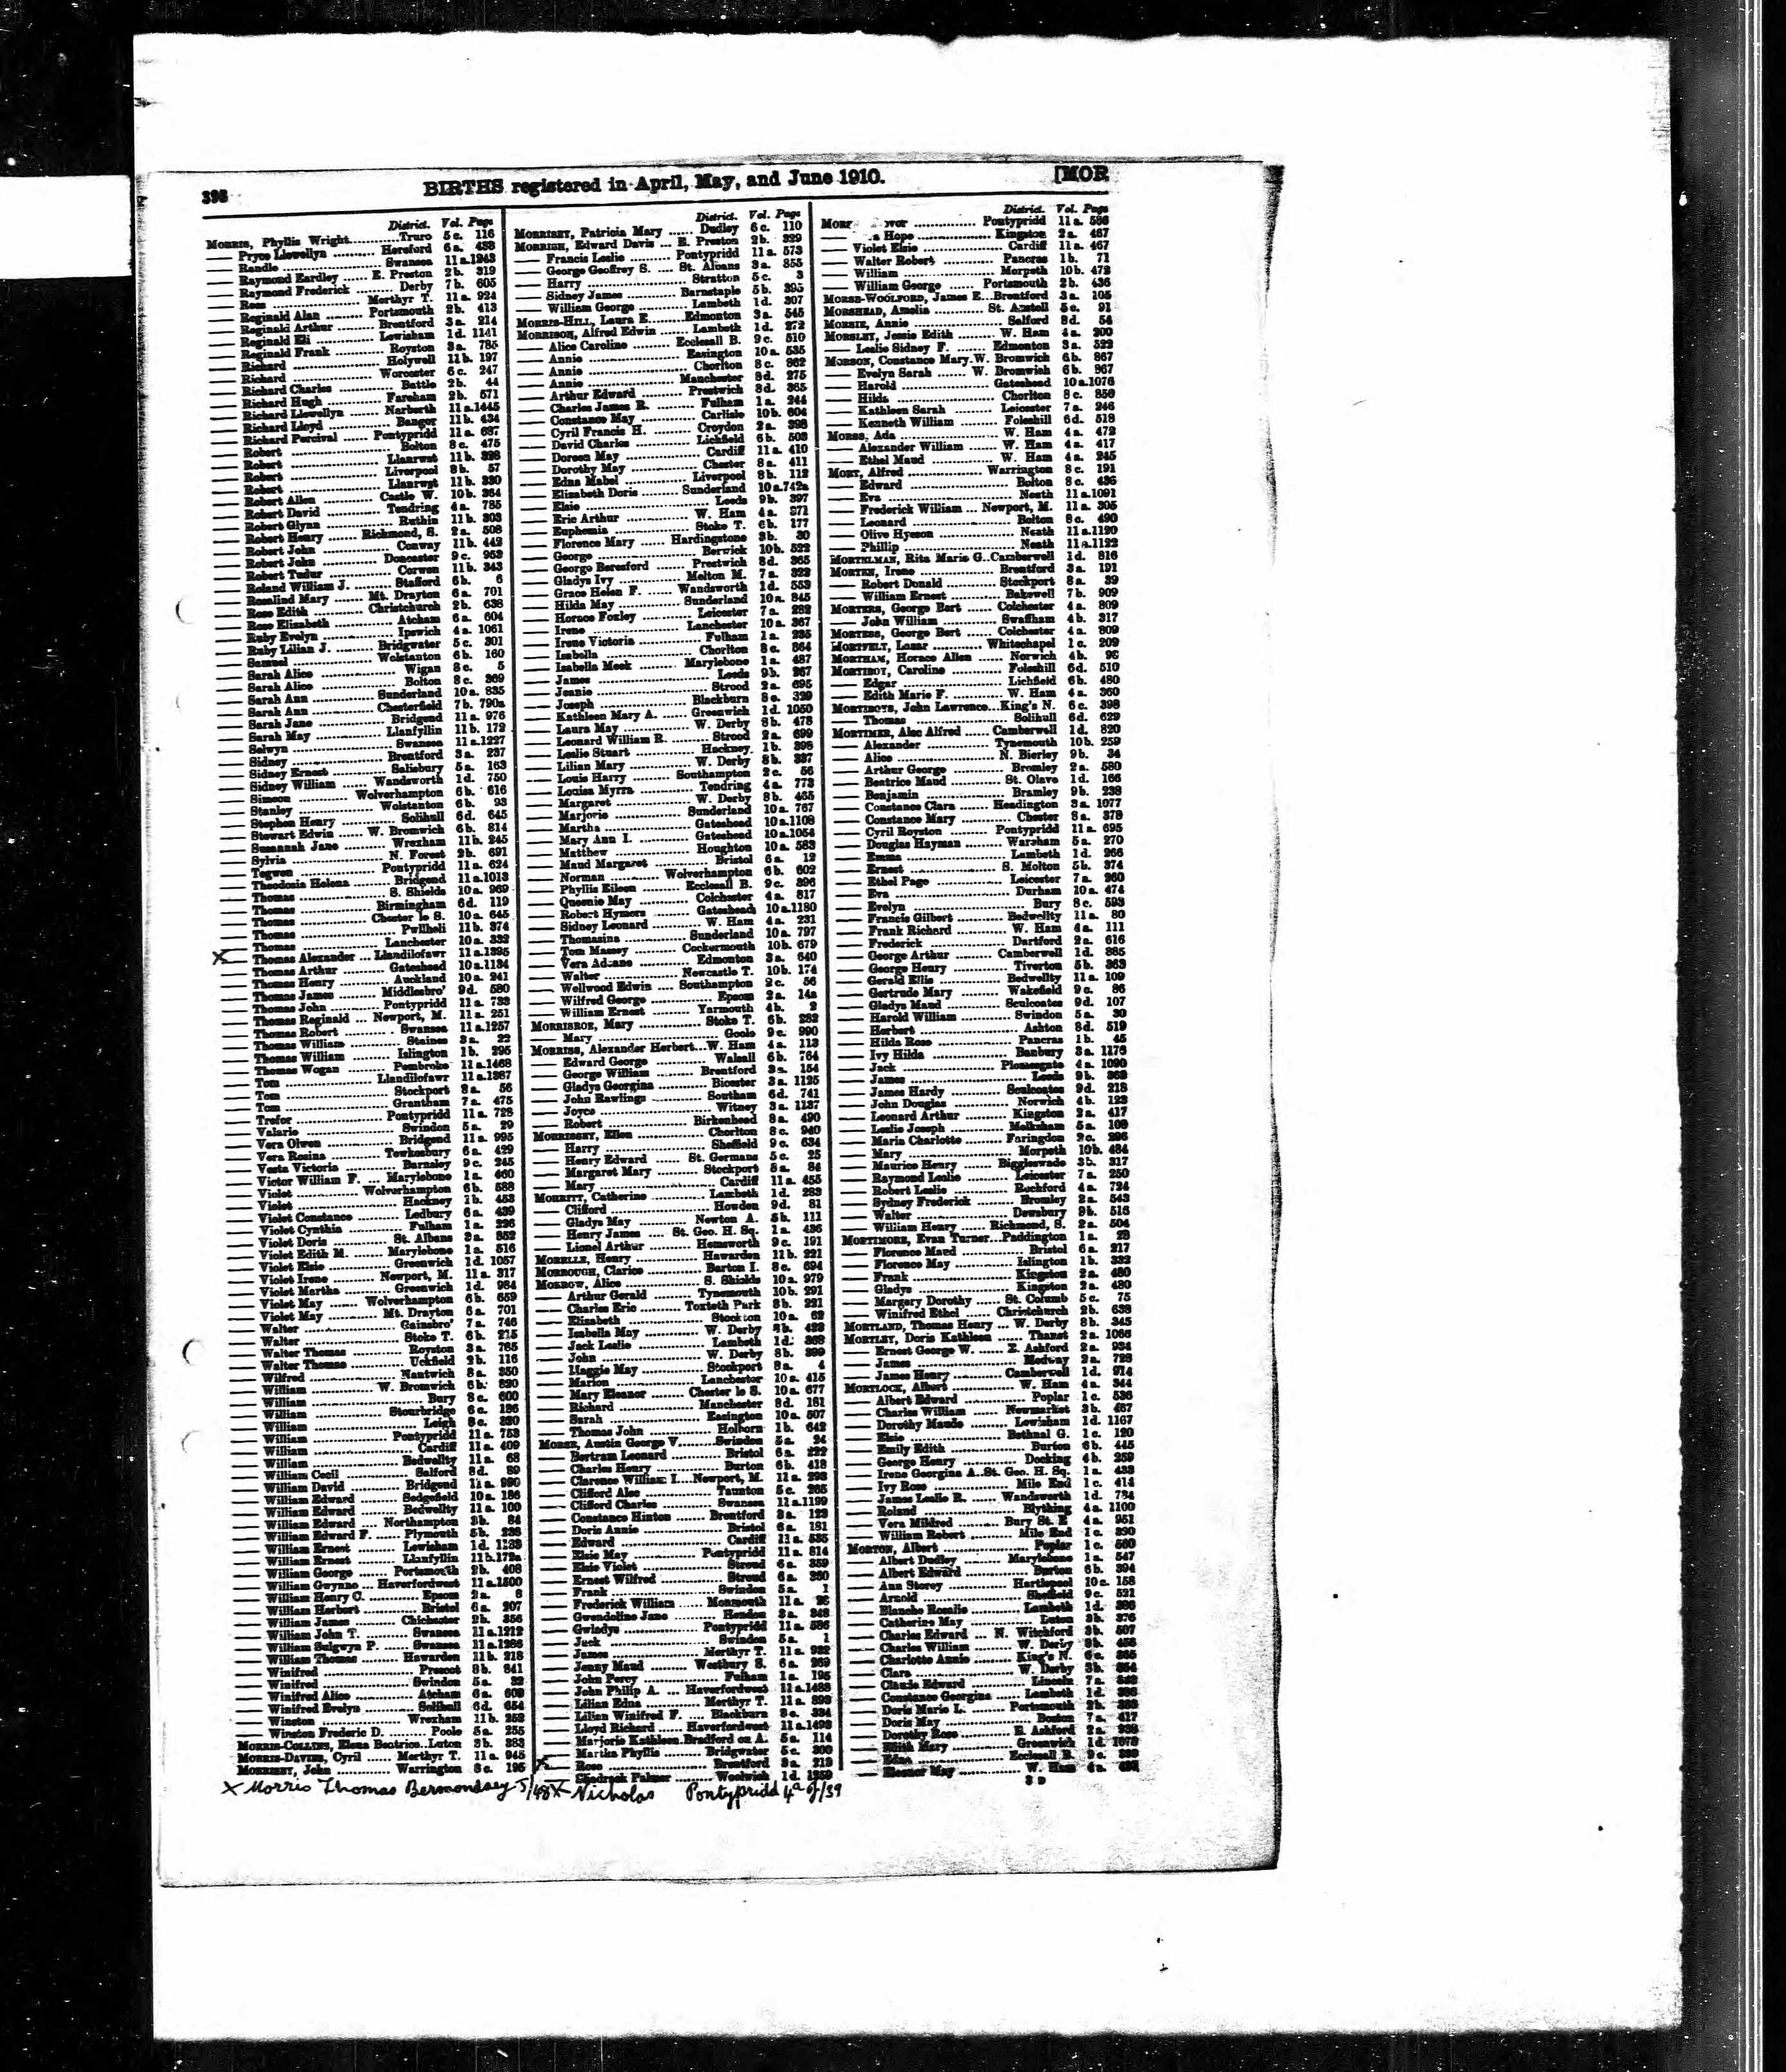 396 BIRTHS registered in April, May, and June 1910. [MOR
District. Vol. Page
MORRIS, Phyllis Wright............Truro 5 c. 116
— Pryce Llewellyn ........... Hereford 6 a. 488
— Randle ........... Swansea 11 a.1243
— Raymond Eardley ...... E. Preston 2 b. 319
— Raymond Frederick ......... Derby 7 b. 605
— Rees ........... Merthyr T. 11 a. 924
— Reginald Alan ......... Portsmouth 2 b. 413
— Reginald Arthur ......... Brentford 3 a. 214
— Reginald Eli ........... Lewisham 1 d. 1141
— Reginald Frank ........... Royston 3 a. 785
— Richard ........... Holywell 11 b. 197
— Richard ........... Worcester 6 c. 247
— Richard Charles ........... Battle 2 b. 44
— Richard Hugh ........... Fareham 2 b. 571
— Richard Llewellyn ...... Narberth 11 a.1445
— Richard Lloyd ........... Bangor 11 b. 434
— Richard Percival ...... Pontypridd 11 a. 637
— Robert ........... Bolton 8 c. 475
— Robert ........... Llanrwst 11 b. 328
— Robert ........... Liverpool 8 b. 57
— Robert ........... Llanrwst 11 b. 330
— Robert Allen ......... Castle W. 10 b. 364
— Robert David ........... Tendring 4 a. 785
— Robert Glynn ........... Ruthin 11 b. 303
— Robert Henry ....... Richmond, S. 2 a. 508
— Robert John ........... Conway 11 b. 442
— Robert John ........... Doncaster 9 c. 953
— Robert Tudur ........... Corwen 11 b. 343
— Roland William J. ....... Stafford 6 b. 6
— Rosalind Mary ...... Mt. Drayton 6 a. 701
— Rose Edith ......... Christchurch 2 b. 638
— Rose Elizabeth ........... Atcham 6 a. 604
— Ruby Evelyn ........... Ipswich 4 a. 1061
— Ruby Lilian J. ....... Bridgwater 5 c. 301
— Samuel ........... Wolstanton 6 b. 160
— Sarah Alice ........... Wigan 8 c. 5
— Sarah Alice ........... Bolton 8 c. 369
— Sarah Ann ........... Sunderland 10 a. 835
— Sarah Ann ......... Chesterfield 7 b. 790a
— Sarah Jane ........... Bridgend 11 a. 976
— Sarah May ........... Llanfyllin 11 b. 172
— Selwyn ........... Swansea 11 a.1227
— Sidney ........... Brentford 3 a. 237
— Sidney Ernest ........... Salisbury 5 a. 163
— Sidney William ...... Wandsworth 1 d. 750
— Simeon ........... Wolverhampton 6 b. 616
— Stanley ........... Wolstanton 6 b. 93
— Stephen Henry ........... Solihull 6 d. 645
— Stewart Edwin ...... W. Bromwich 6 b. 814
— Susannah Jane ......... Wrexham 11 b. 245
— Sylvia ........... N. Forest 2 b. 691
— Tegwen ........... Pontypridd 11 a. 624
— Theodosia Helena ......... Bridgend 11 a.1013
— Thomas ........... S. Shields 10 a. 969
— Thomas ........... Birmingham 6 d. 119
— Thomas ......... Chester le S. 10 a. 645
— Thomas ........... Pwllheli 11 b. 374
— Thomas ........... Lanchester 10 a. 332
X — Thomas Alexander ... Llandilofawr 11 a.1395
— Thomas Arthur ......... Gateshead 10 a.1134
— Thomas Henry ......... Auckland 10 a. 241
— Thomas James ......... Middlesbro' 9 d. 580
— Thomas John ......... Pontypridd 11 a. 733
— Thomas Reginald ... Newport, M. 11 a. 251
— Thomas Robert ........... Swansea 11 a.1257
— Thomas William ........... Staines 3 a. 22
— Thomas William ......... Islington 1 b. 295
— Thomas Wogan ........ Pembroke 11 a.1468
— Tom ........... Llandilofawr 11 a.1387
— Tom ........... Stockport 8 a. 56
— Tom ........... Grantham 7 a. 475
— Trefor ........... Pontypridd 11 a. 728
— Valarie ........... Swindon 5 a. 29
— Vera Olwen ........... Bridgend 11 a. 995
— Vera Rosina ......... Tewkesbury 6 a. 429
— Vesta Victoria ........... Barnsley 9 c. 245
— Victor William F. .... Marylebone 1 a. 460
— Violet ........... Wolverhampton 6 b. 588
— Violet ........... Hackney 1 b. 453
— Violet Constance ......... Ledbury 6 a. 439
— Violet Cynthia ........... Fulham 1 a. 226
— Violet Doris ........... St. Albans 3 a. 852
— Violet Edith M. ....... Marylebone 1 a. 516
— Violet Elsie ........... Greenwich 1 d. 1057
— Violet Irene ......... Newport, M. 11 a. 317
— Violet Martha ......... Greenwich 1 d. 984
— Violet May ...... Wolverhampton 6 b. 659
— Violet May ......... Mt. Drayton 6 a. 701
— Walter ........... Gainsbro' 7 a. 746
— Walter ........... Stoke T. 6 b. 215
— Walter Thomas ........... Royston 3 a. 765
— Walter Thomas ........... Uckfield 2 b. 116
— Wilfred ........... Nantwich 8 a. 350
— William ........... W. Bromwich 6 b. 820
— William ........... Bury 8 c. 600
— William ........... Stourbridge 6 c. 186
— William ........... Leigh 8 c. 220
— William ........... Pontypridd 11 a. 753
— William ........... Cardiff 11 a. 409
— William ........... Bedwellty 11 a. 68
— William Cecil ........... Salford 8 d. 89
— William David ......... Bridgend 11 a. 990
— William Edward ........ Sedgefield 10 a. 186
— William Edward ....... Bedwellty 11 a. 100
— William Edward .... Northampton 3 b. 84
— William Edward F. ..... Plymouth 5 b. 238
— William Ernest ....... Lewisham 1 d. 1133
— William Ernest ....... Llanfyllin 11 b.179a
— William George ...... Portsmouth 2 b. 408
— William Gwynne ... Haverfordwest 11 a.1500
— William Henry C. ........ Epsom 2 a. 8
— William Herbert ......... Bristol 6 a. 207
— William James ......... Chichester 2 b. 356
— William John T. ......... Swansea 11 a.1212
— William Sulgwyn P. ..... Swansea 11 a.1286
— William Thomas ....... Hawarden 11 b. 218
— Winifred ........... Prescot 8 b. 841
— Winifred ........... Swindon 5 a. 32
— Winifred Alice ........... Atcham 6 a. 609
— Winifred Evelyn ......... Solihull 6 d. 654
— Winston ........... Wrexham 11 b. 253
— Winston Frederic D. ....... Poole 5 a. 255
MORRIS-COLLINS, Elena Beatrice..Luton 3 b. 383
MORRIS-DAVIES, Cyril ...... Merthyr T. 11 a. 945
MORRISBY, John ......... Warrington 8 c. 195
District. Vol. Page
MORRISEY, Patricia Mary ...... Dudley 6 c. 110
MORRISH, Edward Davis ... E. Preston 2 b. 329
— Francis Leslie ......... Pontypridd 11 a. 573
— George Geoffrey S. .... St. Albans 3 a. 855
— Harry ........... Stratton 5 c. 3
— Sidney James ......... Barnstaple 5 b. 395
— William George ......... Lambeth 1 d. 307
MORRIS-HILL, Laura E. ........ Edmonton 3 a. 545
MORRISON, Alfred Edwin ...... Lambeth 1 d. 272
— Alice Caroline ......... Ecclesall B. 9 c. 510
— Annie ........... Easington 10 a. 535
— Annie ........... Chorlton 8 c. 862
— Annie ........... Manchester 8 d. 275
— Arthur Edward ......... Prestwich 8 d. 365
— Charles James R. ......... Fulham 1 a. 244
— Constance May ......... Carlisle 10 b. 604
— Cyril Francis H. ......... Croydon 2 a. 398
— David Charles ......... Lichfield 6 b. 503
— Doreen May ........... Cardiff 11 a. 410
— Dorothy May ........... Chester 8 a. 411
— Edna Mabel ........... Liverpool 8 b. 112
— Elizabeth Doris ......... Sunderland 10 a.742a
— Elsie ........... Leeds 9 b. 397
— Eric Arthur ........... W. Ham 4 a. 271
— Euphemia ........... Stoke T. 6 b. 177
— Florence Mary ...... Hardingstone 3 b. 30
— George ........... Berwick 10 b. 522
— George Beresford ....... Prestwich 8 d. 365
— Gladys Ivy ........... Melton M. 7 a. 322
— Grace Helen F. ...... Wandsworth 1 d. 553
— Hilda May ........... Sunderland 10 a. 845
— Horace Foxley ......... Leicester 7 a. 282
— Irene ........... Lanchester 10 a. 367
— Irene Victoria ........... Fulham 1 a. 235
— Isabella ........... Chorlton 8 c. 864
— Isabella Meek ....... Marylebone 1 a. 487
— James ........... Leeds 9 b. 267
— Jeanie ........... Strood 2 a. 695
— Joseph ........... Blackburn 8 e. 329
— Kathleen Mary A. ...... Greenwich 1 d. 1050
— Laura May ........... W. Derby 8 b. 478
— Leonard William R. ....... Strood 2 a. 699
— Leslie Stuart ........... Hackney 1 b. 398
— Lilian Mary ........... W. Derby 8 b. 337
— Louis Harry ......... Southampton 2 c. 56
— Louisa Myrra ........... Tendring 4 a. 773
— Margaret ........... W. Derby 8 b. 465
— Marjorie ........... Sunderland 10 a. 767
— Martha ........... Gateshead 10 a.1108
— Mary Ann I. ........... Gateshead 10 a.1054
— Matthew ........... Houghton 10 a. 583
— Maud Margaret ........... Bristol 6 a. 12
— Norman ........... Wolverhampton 6 b. 602
— Phyllis Eileen ......... Ecclesall B. 9 c. 396
— Queenie May ......... Colchester 4 a. 817
— Robert Hymers ......... Gateshead 10 a.1180
— Sidney Leonard ......... W. Ham 4 a. 231
— Thomasina ........... Sunderland 10 a. 797
— Tom Massey ......... Cockermouth 10 b. 679
— Vera Adeane ........... Edmonton 3 a. 640
— Walter ........... Newcastle T. 10 b. 174
— Wellwood Edwin .... Southampton 2 c. 56
— Wilfred George ........... Epsom 2 a. 14a
— William Ernest ......... Yarmouth 4 b. 2
MORRISROE, Mary ........... Stoke T. 6 b. 282
— Mary ........... Goole 9 c. 990
MORRISS, Alexander Herbert...W. Ham 4 a. 113
— Edward George ........... Walsall 6 b. 764
— George William ......... Brentford 3 a. 154
— Gladys Georgina ......... Bicester 3 a. 1125
— John Rawlings ......... Southam 6 d. 741
— Joyce ........... Witney 3 a. 1137
— Robert ........... Birkenhead 8 a. 490
MORRISSEY, Ellen ........... Chorlton 8 c. 940
— Harry ........... Sheffield 9 c. 634
— Henry Edward ...... St. Germans 5 c. 25
— Margaret Mary ......... Stockport 8 a. 84
— Mary ........... Cardiff 11 a. 455
MORRITT, Catherine ........... Lambeth 1 d. 283
— Clifford ........... Howden 9 d. 81
— Gladys May ........... Newton A. 5 b. 111
— Henry James .... St. Geo. H. Sq. 1 a. 436
— Lionel Arthur ......... Hemsworth 9 c. 191
MORRELLE, Henry ........... Hawarden 11 b. 221
MORROUGH, Clarice ........... Barton I. 8 c. 694
MORROW, Alice ........... S. Shields 10 a. 979
— Arthur Gerald ......... Tynemouth 10 b. 291
— Charles Eric ......... Toxteth Park 8 b. 221
— Elizabeth ........... Stockton 10 a. 62
— Isabella May ........... W. Derby 8 b. 423
— Jack Leslie ........... Lambeth 1 d. 368
— John ........... W. Derby 8 b. 399
— Maggie May ........... Stockport 8 a. 4
— Marion ........... Lanchester 10 a. 415
— Mary Eleanor ........ Chester le S. 10 a. 677
— Richard ........... Manchester 8 d. 181
— Sarah ........... Easington 10 a. 507
— Thomas John ........... Holborn 1 b. 642
MORSE, Austin George V. ....... Swindon 5 a. 24
— Bertram Leonard ......... Bristol 6 a. 222
— Charles Henry ........... Burton 6 b. 418
— Clarence William I....Newport, M. 11 a. 293
— Clifford Alec ........... Taunton 5 c. 265
— Clifford Charles ......... Swansea 11 a.1199
— Constance Hinton ....... Brentford 3 a. 123
— Doris Annie ........... Bristol 6 a. 181
— Edward ........... Cardiff 11 a. 535
— Elsie May ........... Pontypridd 11 a. 814
— Elsie Violet ........... Stroud 6 a. 359
— Ernest Wilfred ........... Stroud 6 a. 360
— Frank ........... Swindon 5 a. 1
— Frederick William ..... Monmouth 11 a. 26
— Gwendoline Jane ........ Hendon 3 a. 348
— Gwladys ........... Pontypridd 11 a. 586
— Jack ........... Swindon 5 a. 1
— James ........... Merthyr T. 11 a. 932
— Jenny Maud ......... Westbury S. 6 a. 269
— John Percy ........... Fulham 1 a. 195
— John Philip A. ... Haverfordwest 11 a.1488
— Lilian Edna ......... Merthyr T. 11 a. 893
— Lilian Winifred F. .... Blackburn 8 e. 334
— Lloyd Richard ...... Haverfordwest 11 a.1493
— Marjorie Kathleen.Bradford on A. 5 a. 114
— Martha Phyllis ....... Bridgwater 5 c. 300
X — Rose ........... Brentford 3 a. 219
— Shadrack Palmer ........ Woolwich 1 d. 1259
District. Vol. Page
MORS vor ........... Pontypridd 11 a. 586
a Hope ........... Kingston 2 a. 467
— Violet Elsie ........... Cardiff 11 a. 467
— Walter Robert ........... Pancras 1 b. 71
— William ........... Morpeth 10 b. 472
— William George ...... Portsmouth 2 b. 436
MORSE-WOOLFORD, James E...Brentford 3 a. 105
MORSHEAD, Amelia ........... St. Austell 5 c. 91
MORSIE, Annie ........... Salford 8 d. 54
MORSLEY, Jessie Edith ......... W. Ham 4 a. 200
— Leslie Sidney F. ....... Edmonton 3 a. 522
MORSON, Constance Mary.W. Bromwich 6 b. 867
— Evelyn Sarah ...... W. Bromwich 6 b. 867
— Harold ........... Gateshead 10 a.1076
— Hilda ........... Chorlton 8 c. 856
— Kathleen Sarah ......... Leicester 7 a. 246
— Kenneth William ....... Foleshill 6 d. 518
MORSS, Ada ........... W. Ham 4 a. 472
— Alexander William ...... W. Ham 4 a. 417
— Ethel Maud ........... W. Ham 4 a. 245
MORT, Alfred ........... Warrington 8 c. 191
— Edward ........... Bolton 8 c. 436
— Eva ........... Neath 11 a.1091
— Frederick William ... Newport, M. 11 a. 305
— Leonard ........... Bolton 8 c. 490
— Olive Hyeson ........... Neath 11 a.1120
— Phillip ........... Neath 11 a.1122
MORTELMAN, Rita Marie G..Camberwell 1 d. 816
MORTEN, Irene ........... Brentford 3 a. 191
— Robert Donald ......... Stockport 8 a. 39
— William Ernest ......... Bakewell 7 b. 909
MORTERS, George Bert ...... Colchester 4 a. 809
— John William ......... Swaffham 4 b. 317
MORTESS, George Bert ...... Colchester 4 a. 809
MORTFELT, Lazar ........... Whitechapel 1 c. 209
MORTHAM, Horace Allen ...... Norwich 4 b. 96
MORTIBOY, Caroline ........... Foleshill 6 d. 510
— Edgar ........... Lichfield 6 b. 480
— Edith Marie F. ......... W. Ham 4 a. 360
MORTIBOYS, John Lawrence...King's N. 6 c. 398
— Thomas ........... Solihull 6 d. 629
MORTIMER, Alec Alfred ...... Camberwell 1 d. 820
— Alexander ........... Tynemouth 10 b. 259
— Alice ........... N. Bierley 9 b. 34
— Arthur George ......... Bromley 2 a. 580
— Beatrice Maud ....... St. Olave 1 d. 166
— Benjamin ........... Bramley 9 b. 238
— Constance Clara ...... Headington 3 a. 1077
— Constance Mary ......... Chester 8 a. 378
— Cyril Royston ......... Pontypridd 11 a. 695
— Douglas Hayman ........ Wareham 5 a. 270
— Emma ........... Lambeth 1 d. 266
— Ernest ........... S. Molton 5 b. 374
— Ethel Page ........... Leicester 7 a. 260
— Eva ........... Durham 10 a. 474
— Evelyn ........... Bury 8 c. 593
— Francis Gilbert ......... Bedwellty 11 a. 80
— Frank Richard ........... W. Ham 4 a. 111
— Frederick ........... Dartford 2 a. 616
— George Arthur ....... Camberwell 1 d. 885
— George Henry ........... Tiverton 5 b. 363
— Gerald Ellis ........... Bedwellty 11 a. 109
— Gertrude Mary ......... Wakefield 9 c. 86
— Gladys Maud ......... Sculcoates 9 d. 107
— Harold William ......... Swindon 5 a. 30
— Herbert ........... Ashton 8 d. 519
— Hilda Rose ........... Pancras 1 b. 45
— Ivy Hilda ........... Banbury 3 a. 1176
— Jack ........... Plomesgate 4 a. 1090
— James ........... Leeds 9 b. 369
— James Hardy ......... Sculcoates 9 d. 218
— John Douglas ........... Norwich 4 b. 123
— Leonard Arthur ......... Kingston 2 a. 417
— Leslie Joseph ........... Melksham 5 a. 109
— Maria Charlotte ......... Faringdon 2 c. 296
— Mary ........... Morpeth 10 b. 484
— Maurice Henry ...... Biggleswade 3 b. 317
— Raymond Leslie ........ Leicester 7 a. 250
— Robert Leslie ........... Rochford 4 a. 724
— Sydney Frederick ........ Bromley 2 a. 543
— Walter ........... Dewsbury 9 b. 516
— William Henry ...... Richmond, S. 2 a. 504
MORTIMORE, Evan Turner...Paddington 1 a. 28
— Florence Maud ........... Bristol 6 a. 217
— Florence May ........... Islington 1 b. 332
— Frank ........... Kingston 2 a. 480
— Gladys ........... Kingston 2 a. 480
— Margery Dorothy ...... St. Columb 5 c. 75
— Winifred Ethel ..... Christchurch 2 b. 638
MORTLAND, Thomas Henry ... W. Derby 8 b. 345
MORTLEY, Doris Kathleen ...... Thanet 2 a. 1066
— Ernest George W. ..... E. Ashford 2 a. 934
— James ........... Medway 2 a. 728
— James Henry ......... Camberwell 1 d. 914
MORTLOCK, Albert ........... W. Ham 4 a. 344
— Albert Edward ........... Poplar 1 c. 536
— Charles William ....... Newmarket 3 b. 487
— Dorothy Maude ......... Lewisham 1 d. 1167
— Elsie ........... Bethnal G. 1 c. 120
— Emily Edith ........... Burton 6 b. 445
— George Henry ........... Docking 4 b. 259
— Irene Georgina A..St. Geo. H. Sq. 1 a. 433
— Ivy Rose ........... Mile End 1 c. 414
— James Leslie R. ...... Wandsworth 1 d. 784
— Roland ........... Blything 4 a. 1100
— Vera Mildred ....... Bury St. E 4 a. 951
— William Robert ......... Mile End 1 c. 390
MORTON, Albert ........... Poplar 1 c. 560
— Albert Dudley ....... Marylebone 1 a. 547
— Albert Edward ........... Burton 6 b. 394
— Ann Storey ........... Hartlepool 10 c. 158
— Arnold ........... Sheffield 9 c. 521
— Blanche Rosalie ......... Lambeth 1 d. 386
— Catherine May ........... Luton 3 b. 376
— Charles Edward ... N. Witchford 3 b. 507
— Charles William ......... W. Derby 8 b. 458
— Charlotte Annie ........ King's N. 6 c. 365
— Clara ........... W. Derby 8 b. 354
— Claude Edward ......... Lincoln 7 a.
— Constance Georgina ..... Lambeth 1 d.
— Doris Marie L. ....... Portsmouth 2 b.
— Doris May ........... Boston 7 a. 417
— Dorothy Rose ......... E. Ashford 2 a. 938
— Edith Mary ........... Greenwich 1 d. 1073
— Edna ........... Ecclesall B. 9 c.
— Eleanor May ........... W. Ham 4 a.
3 D
X Morris Thomas Bermondsey J/48 X — Nicholas Pontypridd 4a of/39